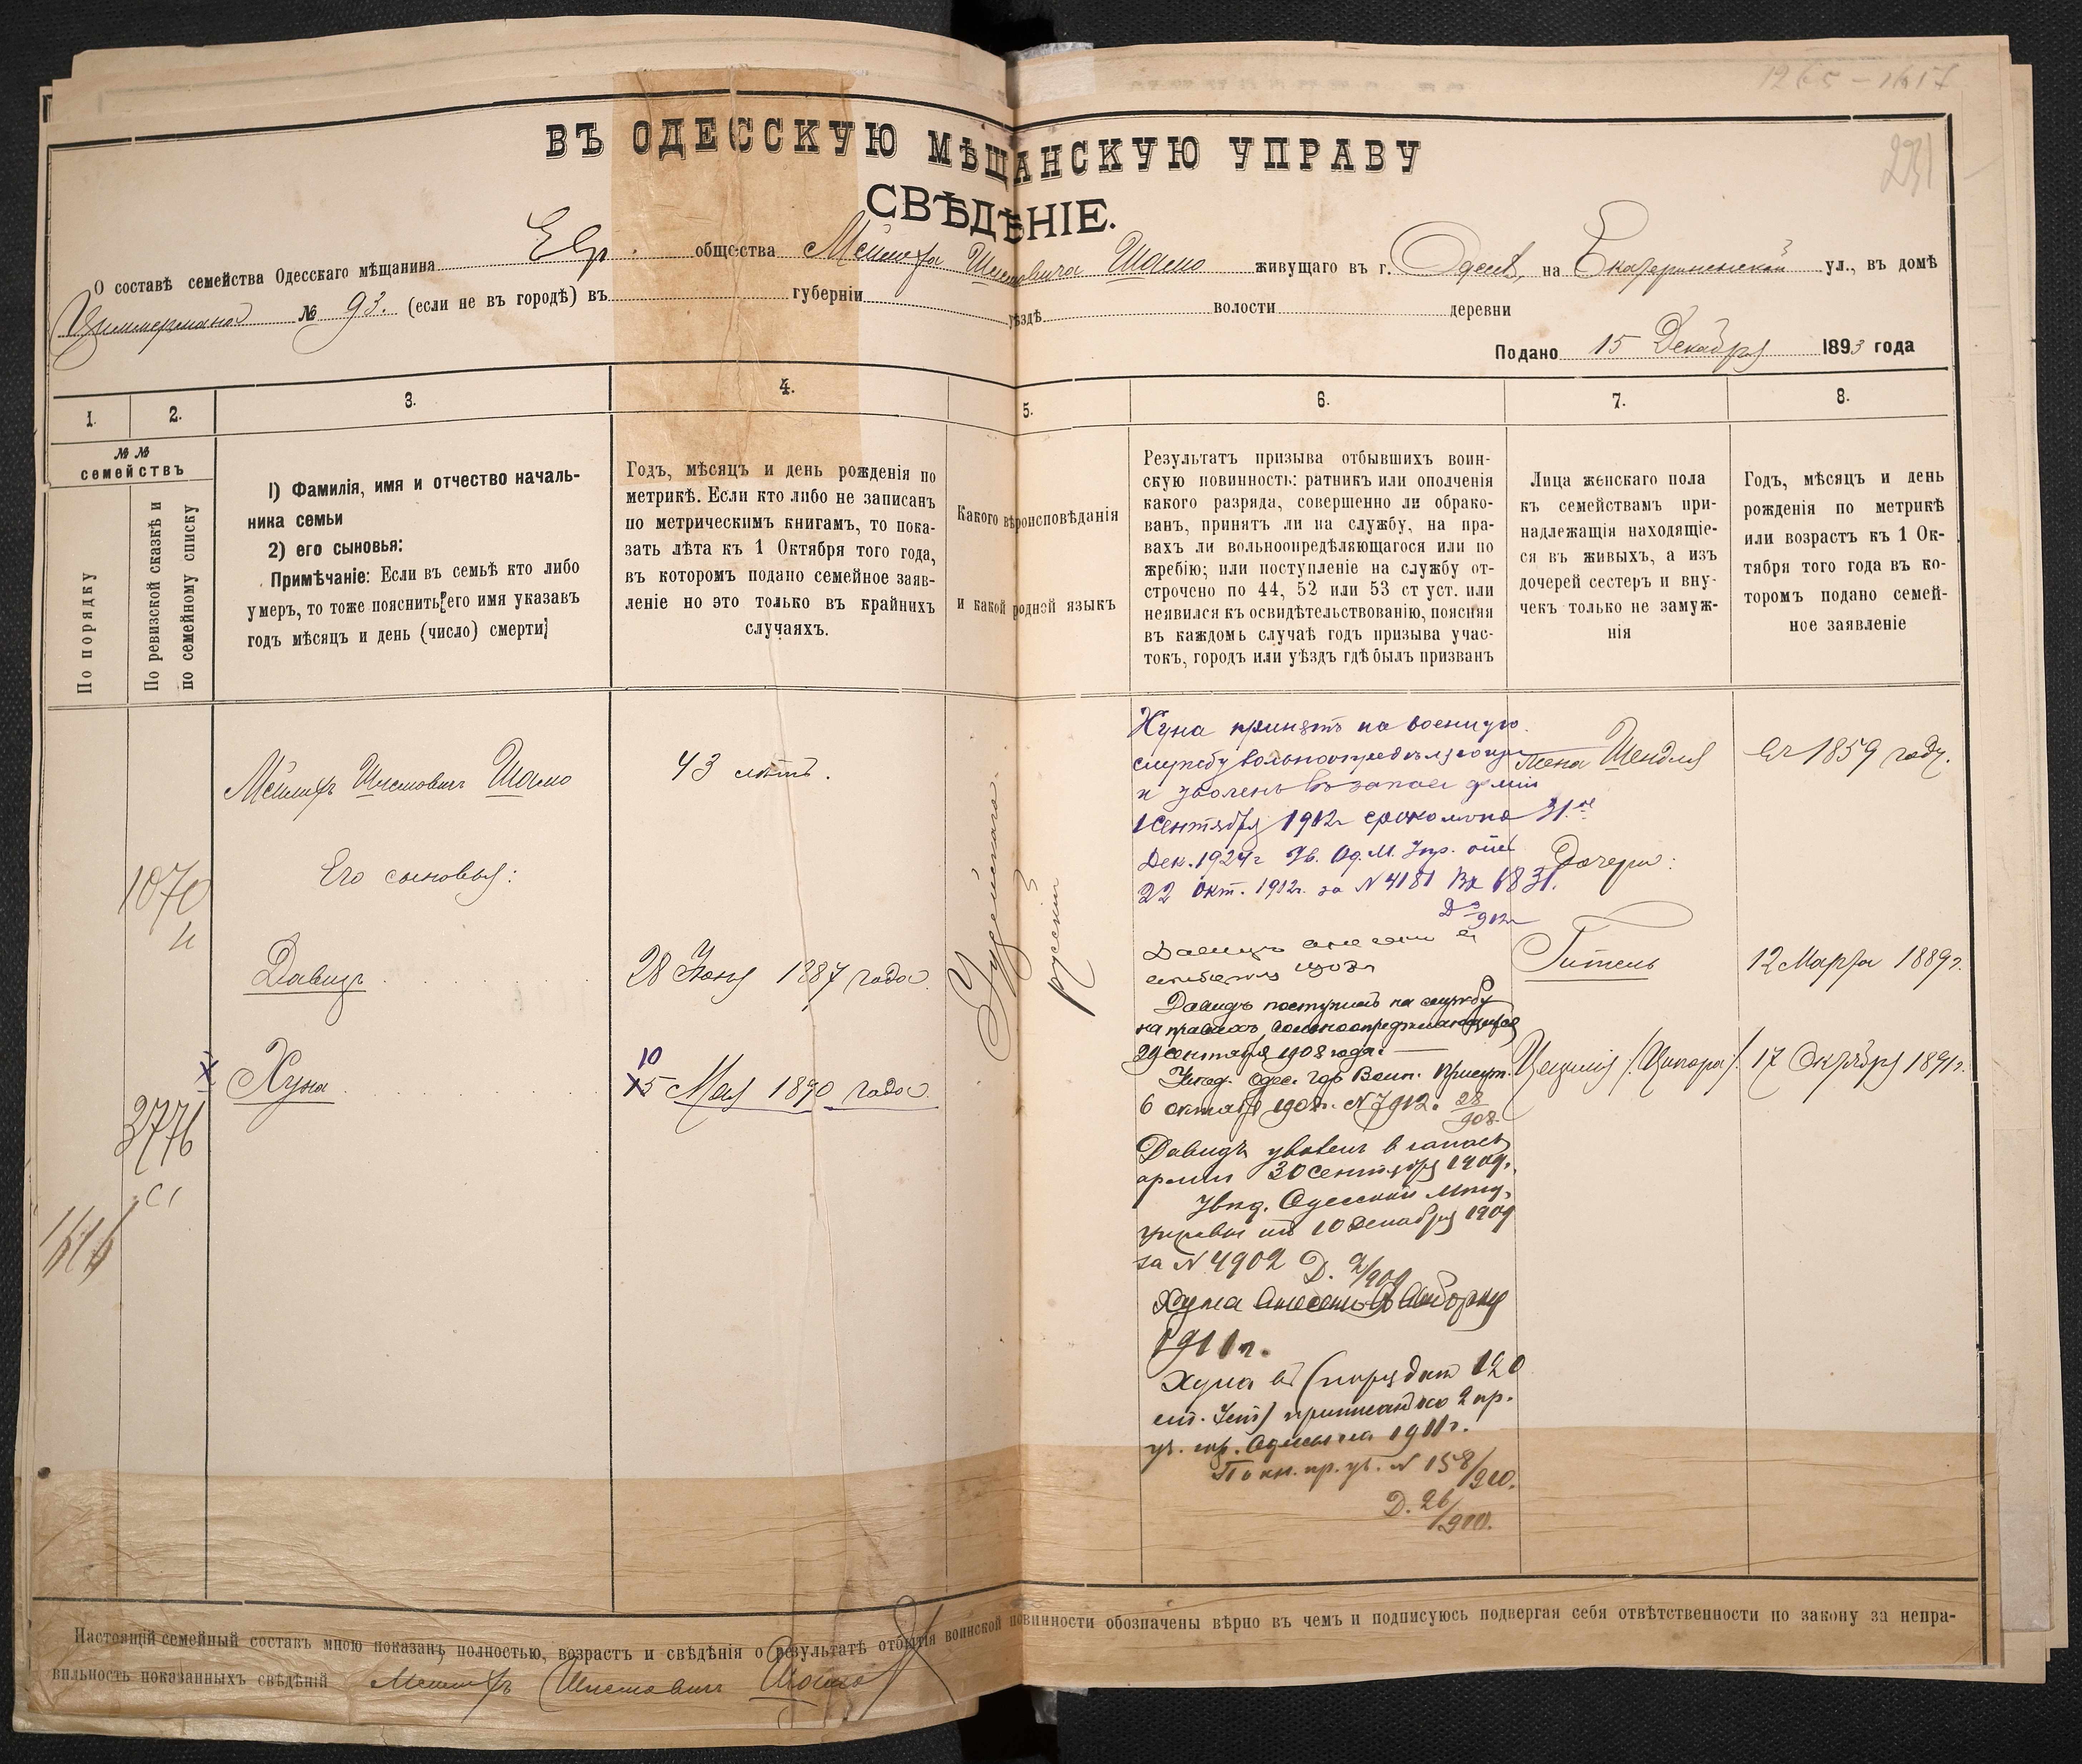 1265-1617
231
ВЪ ОДЕССКУЮ МѢЩАНСКУЮ УПРАВУ
СВѢДѢНІЕ.
О составѣ семейства Одесскаго мѣщанина Евр. общества Мейлеха Шлемовича Шаело живущаго въ г. Одессѣ, на Екатерининской ул., въ домѣ
Циммермана № 93. (если не въ городѣ) въ губерніи уѣздѣ волости деревни
Подано 15 Декабря 1893 года
1.
2.
3.
4.
5.
6.
7.
8.
№ №
семействъ
По порядку
По ревизской сказкѣ и
по семейному списку
1) Фамилія, имя и отчество началь-
ника семьи
2) его сыновья:
Примѣчаніе: Если въ семьѣ кто либо
умеръ, то тоже пояснить его имя указавъ
годъ мѣсяцъ и день (число) смерти;
Годъ, мѣсяцъ и день рожденія по
метрикѣ. Если кто либо не записанъ
по метрическимъ книгамъ, то пока-
зать лѣта къ 1 Октября того года,
въ которомъ подано семейное заяв-
леніе но это только въ крайнихъ
случаяхъ.
Какого вѣроисповѣданія
и какой родной языкъ
Результатъ призыва отбывшихъ воин-
скую повинность: ратникъ или ополченія
какого разряда, совершенно ли обрако-
ванъ, принятъ ли на службу, на пра-
вахъ ли вольноопредѣляющагося или по
жребію; или поступленіе на службу от-
строчено по 44, 52 или 53 ст уст. или
неявился къ освидѣтельствованію, поясняя
въ каждомъ случаѣ годъ призыва учас-
токъ, городъ или уѣздъ гдѣ былъ призванъ
Лица женскаго пола
къ семействамъ при-
надлежащія находящіе-
ся въ живыхъ, а изъ
дочерей сестеръ и вну-
чекъ только не замуж-
нія
Годъ, мѣсяцъ и день
рожденія по метрикѣ
или возрастъ къ 1 Ок-
тября того года въ ко-
торомъ подано семей-
ное заявленіе
1070
3776
1616
43 лѣтъ.
Его сыновья:
Давидъ
28 Іюня 1887 года.
Х Хуна
10
15 Мая 1890 года.
Іудейскаго.
русскій
Хуна принятъ на военную
службу вольноопредѣляющ
и уволенъ въ запасъ арміи
1 Сентября 1912г срокомъ по 31.ое
Дек. 1924г Ув. Од. М. Упр. отъ
22 окт. 1912г. за № 4181 Вх 6831.
Давидъ
Давидъ поступилъ на службу
на правахъ вольноопредѣляющагося
29 сентября 1908 года.
Увед. Одес. Гор Воин. Присут.
6 октября 1908г. № 7912. 28/908.
Давидъ уволенъ в запасъ
арміи 30 Сентября 1909г.
Увед. Одесской Мѣщ.
управы отъ 10 Декабря 1909
за № 4902 Д. 2/909
Хуна внесенъ въ выборку
1911г.
Хуна въ (порядкѣ 120
ст. Уст) приписанъ ко 2 пр.
уч. гор. Одессы на 1911г.
По кн. пр. уч. № 158/910.
Д. 26/910.
Жена Шендля
въ 1859 году.
Дочери:
Гитель
12 Марта 1889г.
Цецилія /Ципора/.
17 Октября 1891г.
Настоящій семейный составъ мною показанъ полностью, возрастъ и свѣдѣнія о результатѣ отбытія воинской повинности обозначены вѣрно въ чемъ и подписуюсь подвергая себя отвѣтственности по закону за непра-
вильность показанныхъ свѣдѣній